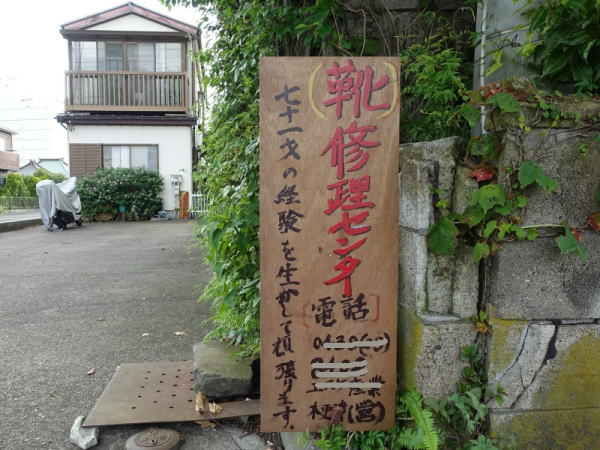 (靴)修理センター
七十一才の経験を生かして頑張ります。
[電話]
営業
(営)